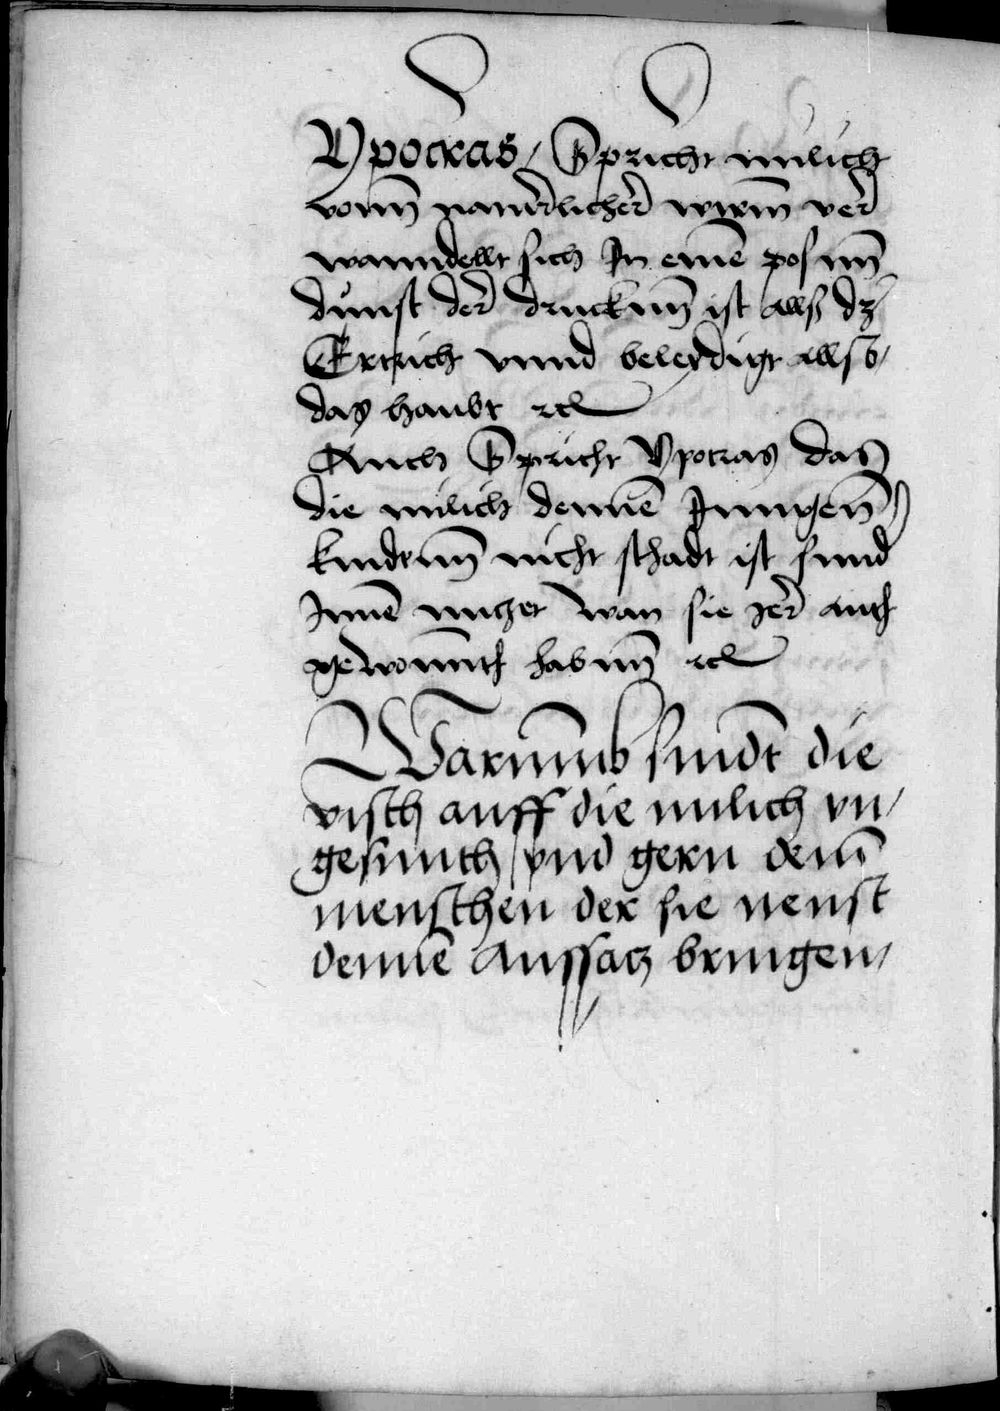 Ypocras / Spricht milich
vonn naturlicher wirm ver
wanndellt sich In eine posenn
dunst der druckenn ist alls dz
Ertrich vnnd beleydigt allso /
das haubt etc
Auch Spricht Ypocras das
die milich dennē Jungenn
kindernn nicht schadt ist sund
Innē nutzer wan sie Jer auch
gewonnth habenn etc
Warumb sindt die
visch auff die milich vn /
gesunth / vnd gern dem
menschen der sie neust
dennē Aussatz bringen /